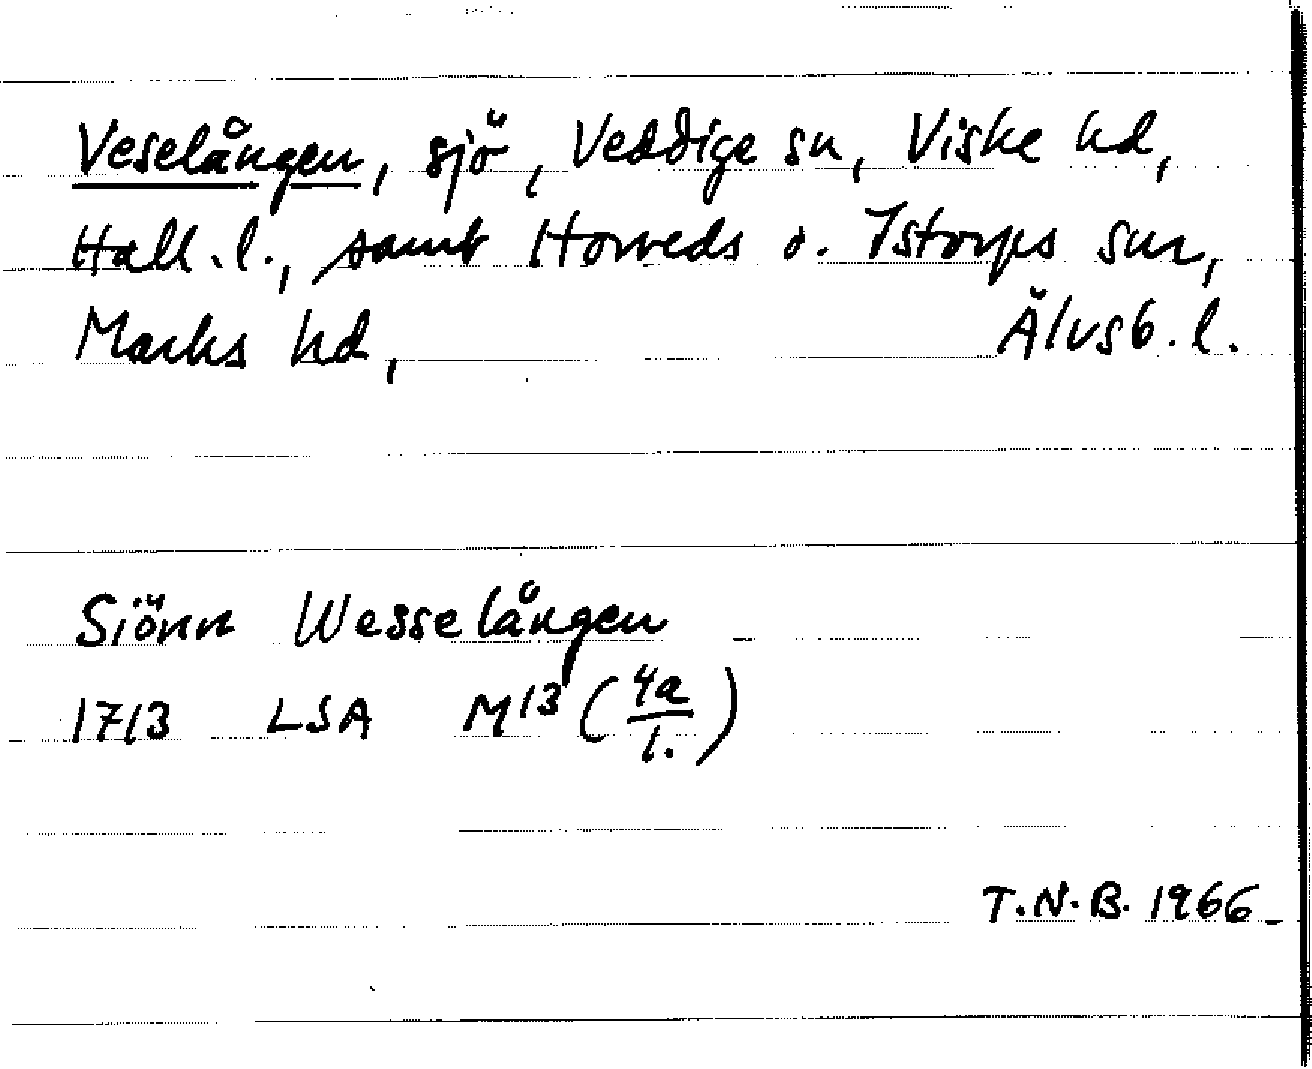 Veselången, sjö, Veddige sn, Viske hd,
Hall. l., samt Horreds o. Istorps snr,
Marks hd, Älvsb. l.
Siönn Wesselången
1713 LSA M13 (4a/1.)
T.N.B. 1966